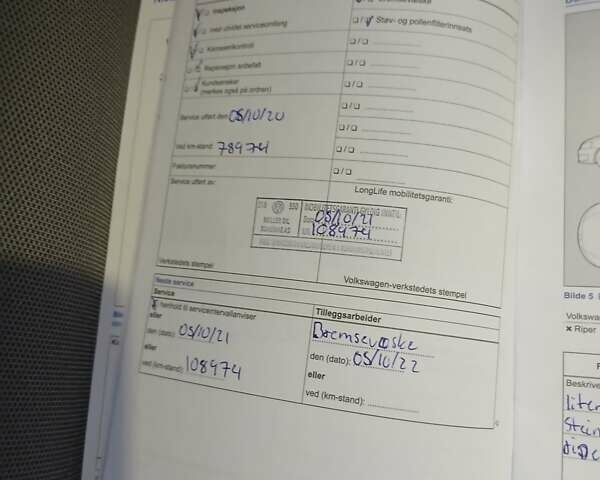 Inspeksjon
med utvidet serviceomfang
Støv- og pollenfilterinnsats
Karosserikontroll
Reparasjon anbefalt
Kundeønsker
(merkes også på ordren)
Service utført den: 05/10/20
ved km-stand: 78974
Fakturanummer
Service utført av:
LongLife mobilitetsgaranti:
MOBILITETSGARANTI GYLDIG INNTIL:
05/10/21
108974
Verkstedets stempel
Volkswagen-verkstedets stempel
Neste service
Service
Tilleggsarbeider
I henhold til serviceintervallanviser
eller
Bremsevæske
den (dato): 05/10/21
den (dato): 05/10/22
eller
eller
ved (km-stand): 108974
ved (km-stand):
Bilde 5
Riper